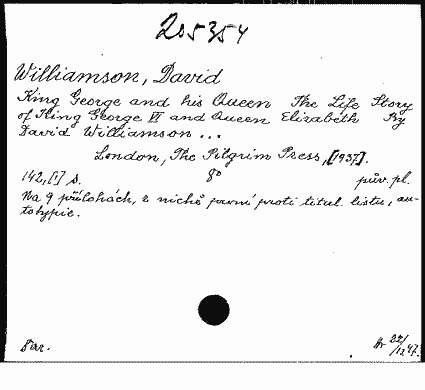 205354
Williamson, David
King George and his Queen The Life Story
of King George VI and Queen Elizabeth By
David Williamson ...
London, The Pilgrim Press, [1937].
142, [1] s. 8° pův. pl.
Na 9 přílohách, z nichž první proti titul. listu, au-
totypie.
Dar. 22/
/12 47.